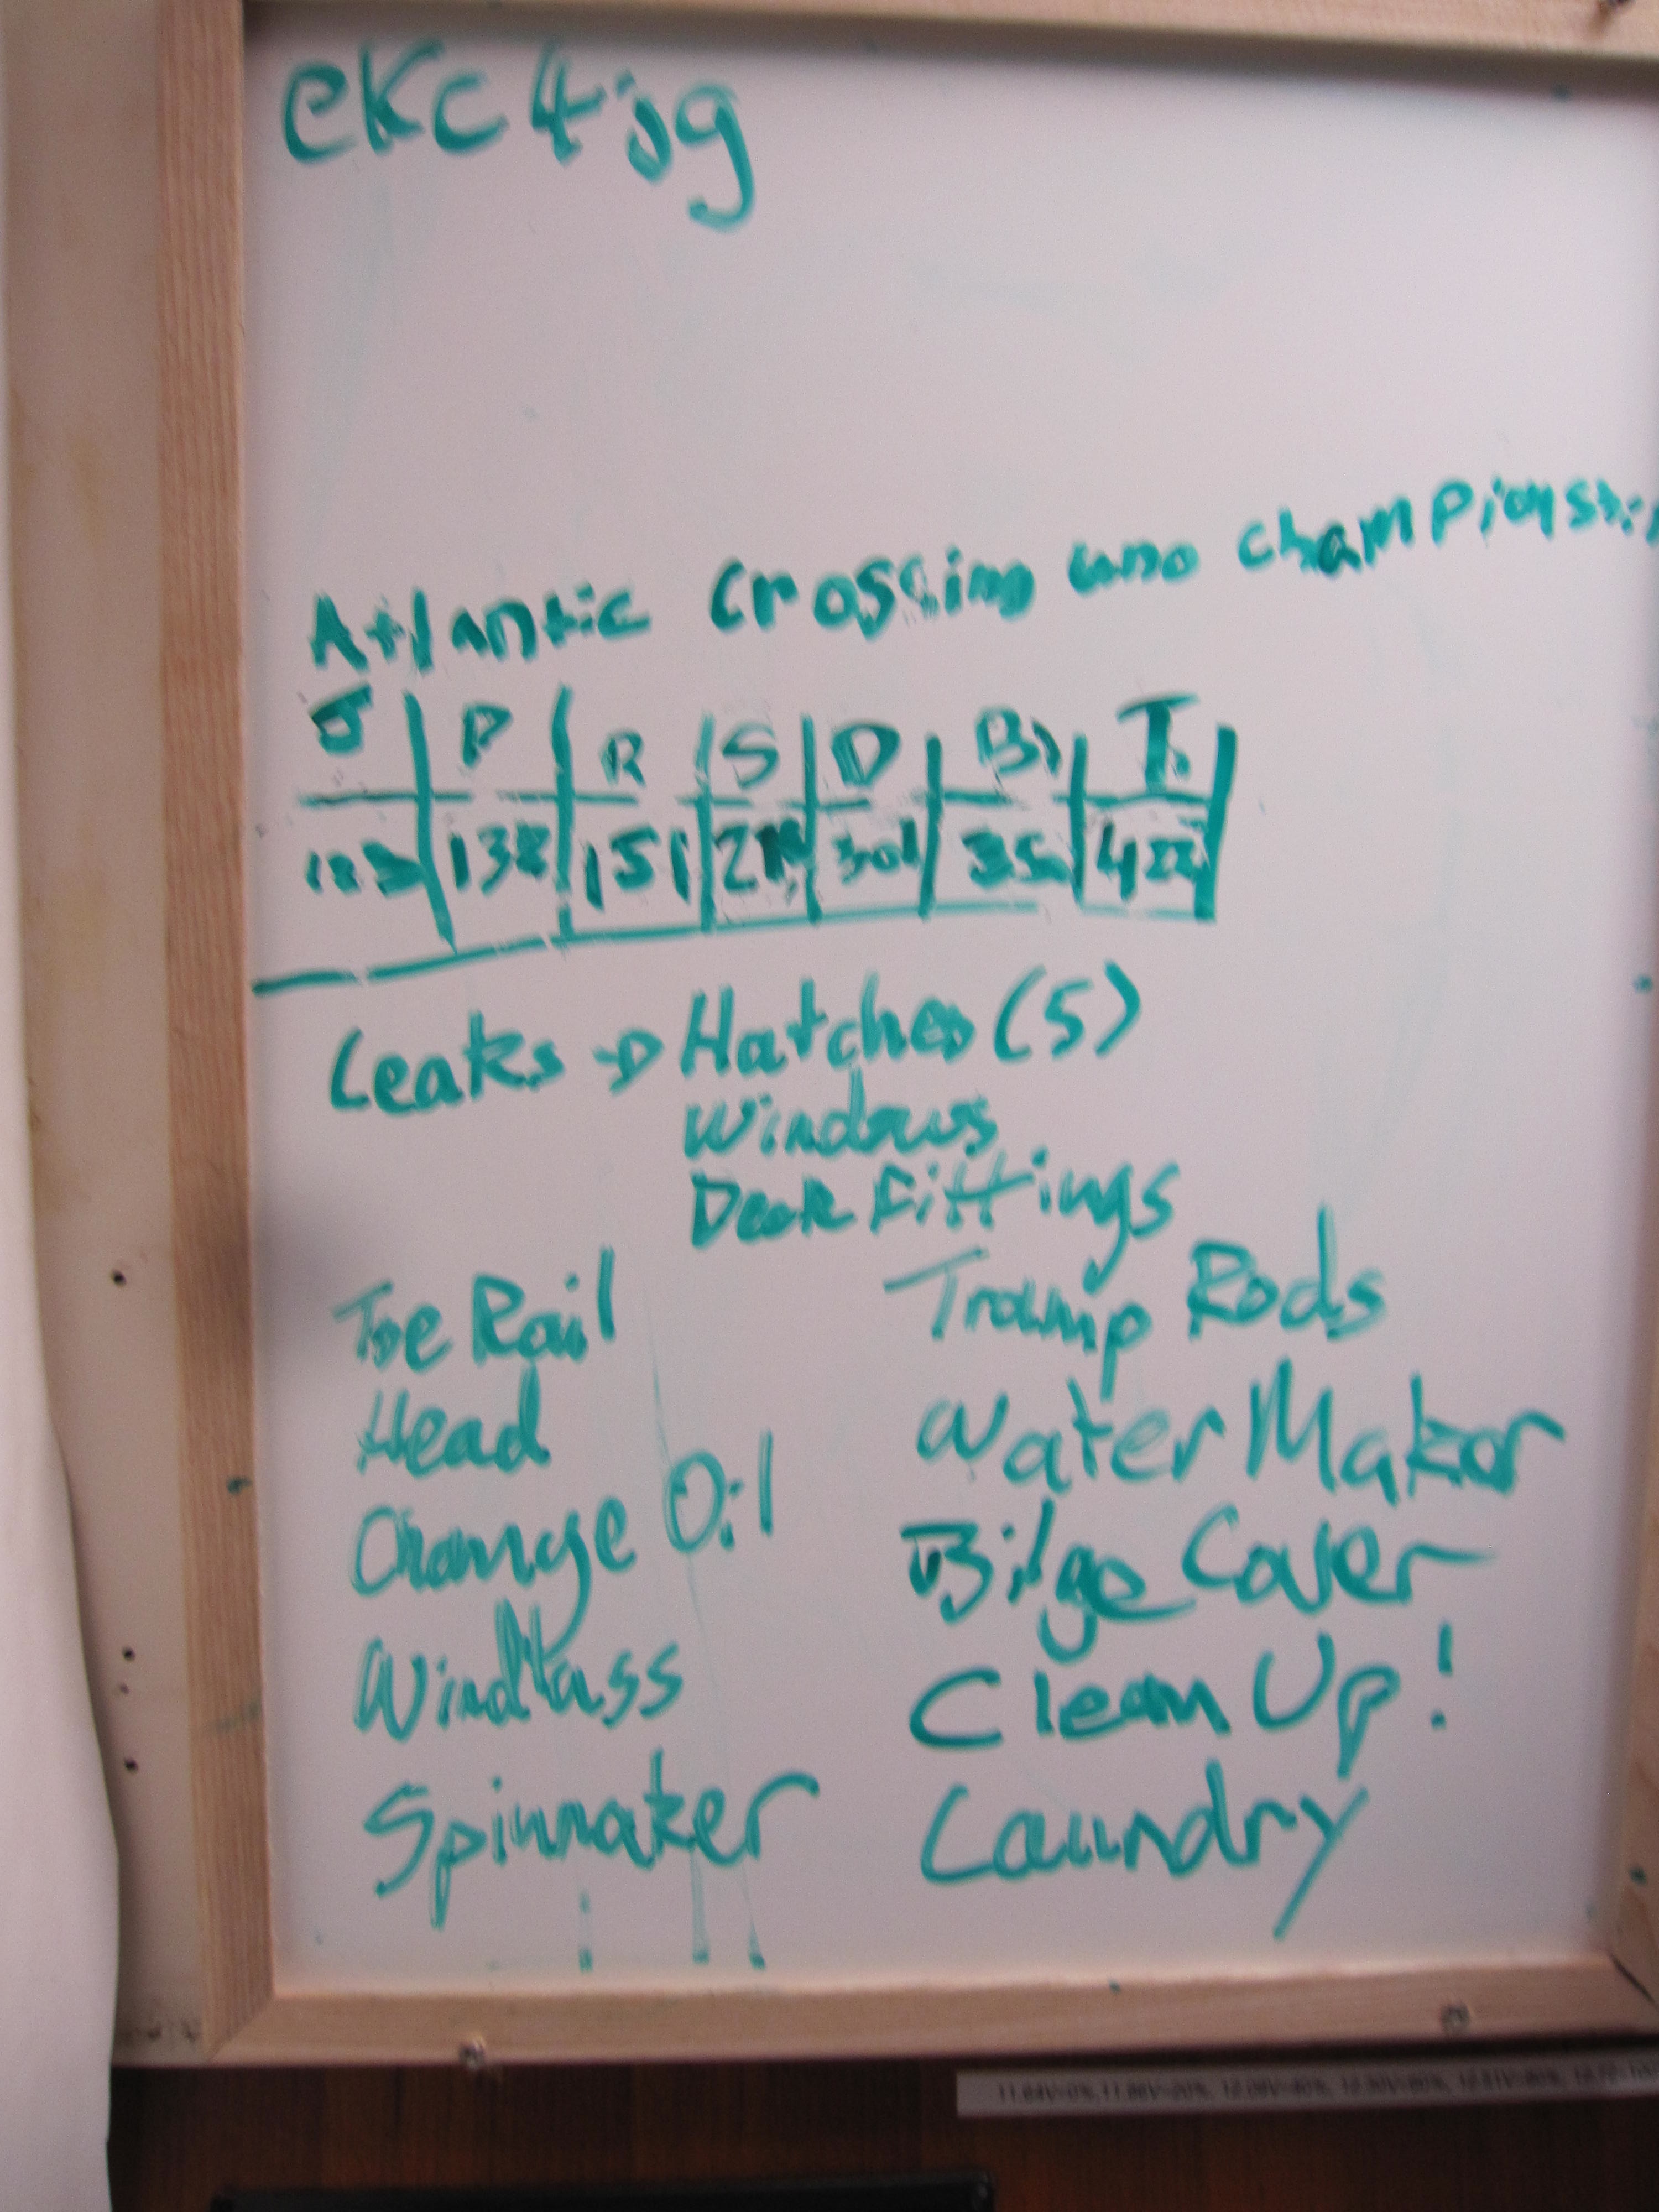 eKc4jg
Atlantic Crossing uno championshi
P R S D B T
138 151 301 35 422
Leaks → Hatches (5)
Windows
Deck Fittings
Toe Rail
Head
Change Oil
Windlass
Spinnaker
Tramp Rods
Water Maker
Bilge Cover
Clean Up!
Laundry
11.64V=0%, 11.86V=20%, 12.09V=40%, 12.30V=60%,